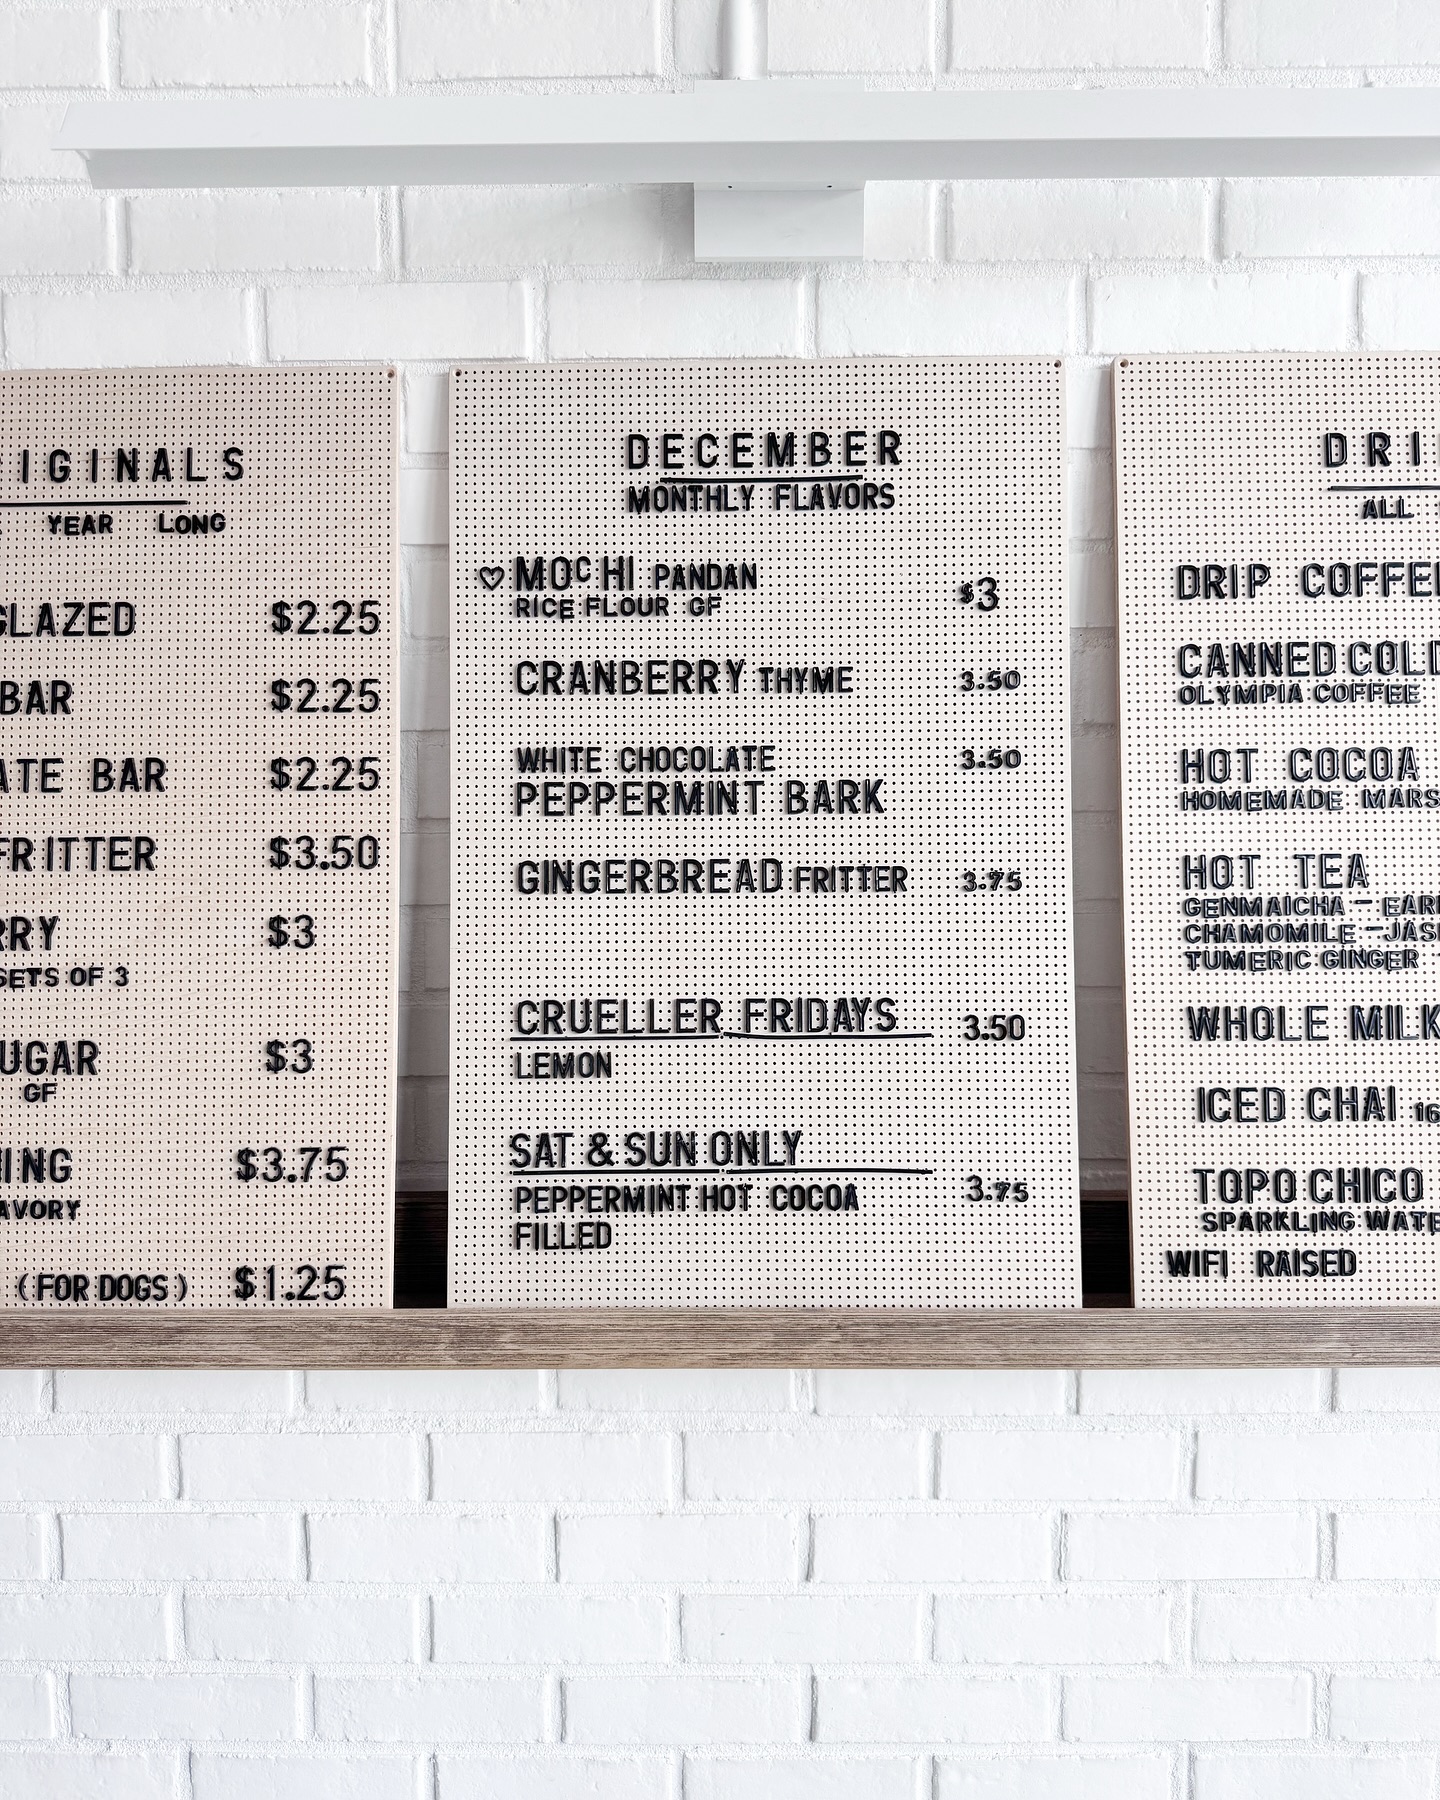 IGINALS
YEAR LONG
GLAZED $2.25
BAR $2.25
ATE BAR $2.25
FRITTER $3.50
RRY $3
SETS OF 3
UGAR $3
GF
ING $3.75
AVORY
(FOR DOGS) $1.25
DECEMBER
MONTHLY FLAVORS
♡ MOCHI PANDAN $3
RICE FLOUR GF
CRANBERRY THYME 3.50
WHITE CHOCOLATE 3.50
PEPPERMINT BARK
GINGERBREAD FRITTER 3.75
CRUELLER FRIDAYS 3.50
LEMON
SAT & SUN ONLY
PEPPERMINT HOT COCOA 3.75
FILLED
DRI
ALL
DRIP COFFEE
CANNED COLD
OLYMPIA COFFEE
HOT COCOA
HOMEMADE MARS
HOT TEA
GENMAICHA - EARL
CHAMOMILE - JAS
TUMERIC GINGER
WHOLE MILK
ICED CHAI 16
TOPO CHICO
SPARKLING WATE
WIFI RAISED